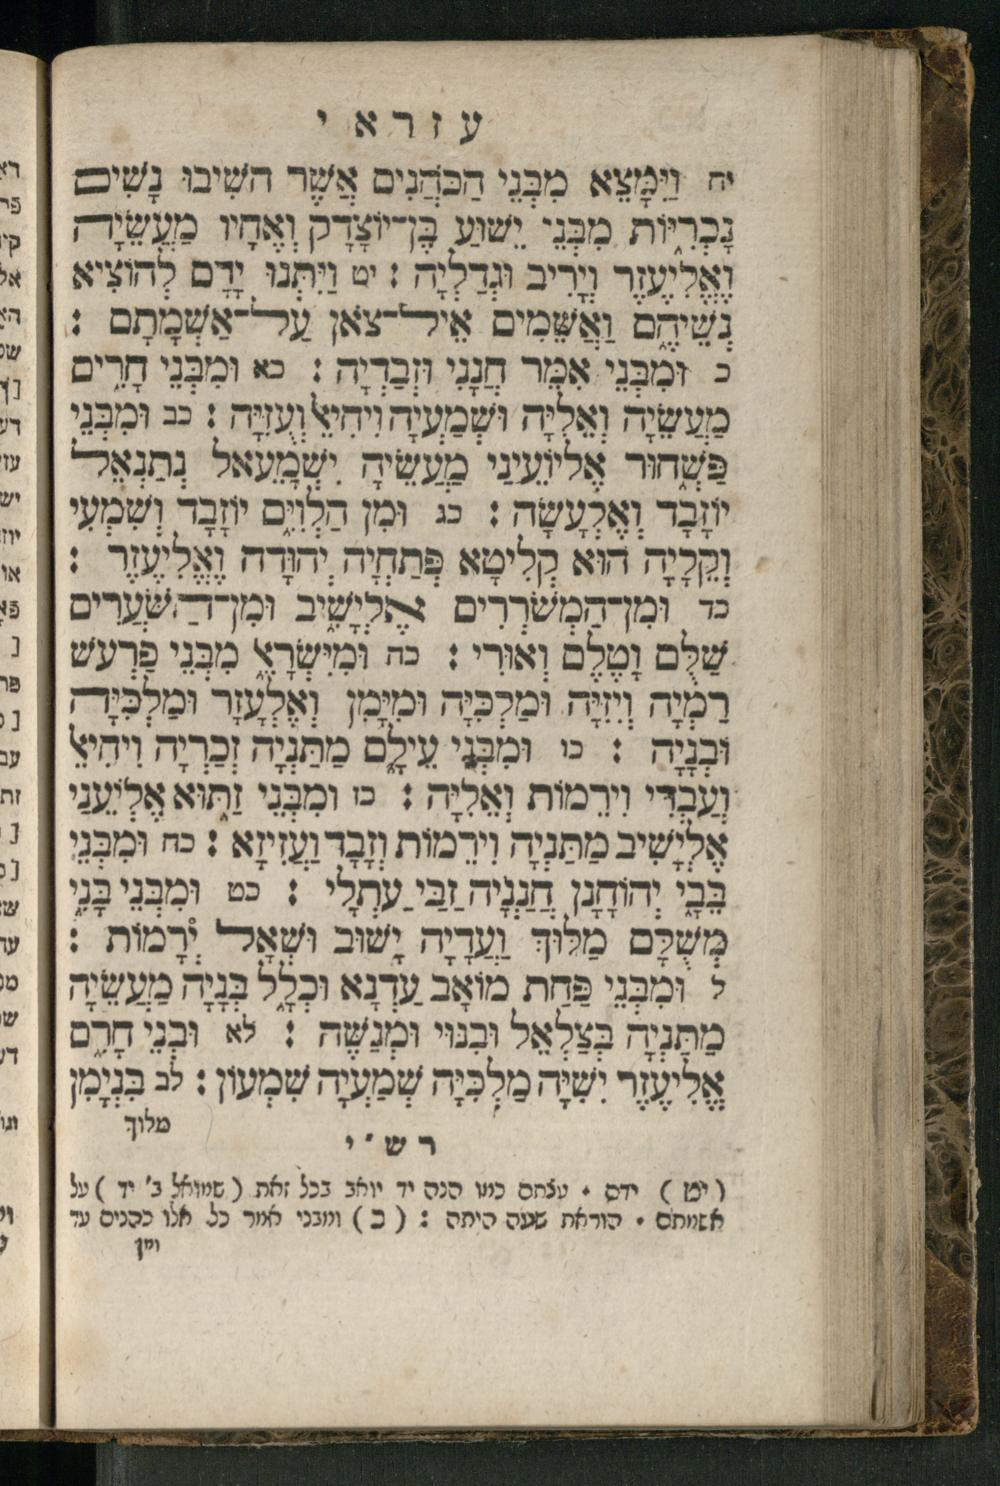 עזרא י
יח וַיִּמָּצֵא מִבְּנֵי הַכֹּהֲנִים אֲשֶׁר הֹשִׁיבוּ נָשִׁים
נָכְרִיּוֹת מִבְּנֵי יֵשׁוּעַ בֶּן־יוֹצָדָק וְאֶחָיו מַעֲשֵׂיָה
וֶאֱלִיעֶזֶר וְיָרִיב וּגְדַלְיָה : יט וַיִּתְּנוּ יָדָם לְהוֹצִיא
נְשֵׁיהֶם וַאֲשֵׁמִים אֵיל־צֹאן עַל־אַשְׁמָתָם :
כ וּמִבְּנֵי אִמֵּר חֲנָנִי וּזְבַדְיָה : כא וּמִבְּנֵי חָרִים
מַעֲשֵׂיָה וְאֵלִיָּה וּשְׁמַעְיָה וִיחִיאֵל וְעֻזִיָּה : כב וּמִבְּנֵי
פַּשְׁחוּר אֶלְיוֹעֵינַי מַעֲשֵׂיָה יִשְׁמָעֵאל נְתַנְאֵל
יוֹזָבָד וְאֶלְעָשָׂה : כג וּמִן הַלְוִיִּם יוֹזָבָד וְשִׁמְעִי
וְקֵלָיָה הוּא קְלִיטָא פְּתַחְיָה יְהוּדָה וֶאֱלִיעֶזֶר :
כד וּמִן־הַמְשֹׁרְרִים אֶלְיָשִׁיב וּמִן־הַשֹּׁעֲרִים
שַׁלֻּם וָטֶלֶם וְאוּרִי : כה וּמִיִּשְׂרָאֵל מִבְּנֵי פַרְעֹשׁ
רַמְיָה וְיִזִּיָּה וּמַלְכִּיָּה וּמִיָּמִן וְאֶלְעָזָר וּמַלְכִּיָּה
וּבְנָיָה : כו וּמִבְּנֵי עֵילָם מַתַּנְיָה זְכַרְיָה וִיחִיאֵל
וְעַבְדִּי וִירֵמוֹת וְאֵלִיָּה : כז וּמִבְּנֵי זַתּוּא אֶלְיוֹעֵנַי
אֶלְיָשִׁיב מַתַּנְיָה וִירֵמוֹת וְזָבָד וַעֲזִיזָא : כח וּמִבְּנֵי
בֵּבָי יְהוֹחָנָן חֲנַנְיָה זַבַּי עַתְלָי : כט וּמִבְּנֵי בָּנִי
מְשֻׁלָּם מַלּוּךְ וַעֲדָיָה יָשׁוּב וּשְׁאָל יְרָמוֹת :
ל וּמִבְּנֵי פַּחַת מוֹאָב עַדְנָא וּכְלָל בְּנָיָה מַעֲשֵׂיָה
מַתַּנְיָה בְצַלְאֵל וּבִנּוּי וּמְנַשֶּׁה : לא וּבְנֵי חָרִם
אֱלִיעֶזֶר יִשִּׁיָּה מַלְכִּיָּה שְׁמַעְיָה שִׁמְעוֹן : לב בִּנְיָמִן
מלוך
רש״י
( יט ) ידם • עצתם כמו הנה יד יואב בכל זאת ( שמואל ב׳ יד ) על
אשמתם • הוראת שעה היתה : ( כ ) ומבני אמר כל אלו כהנים עד
ומן